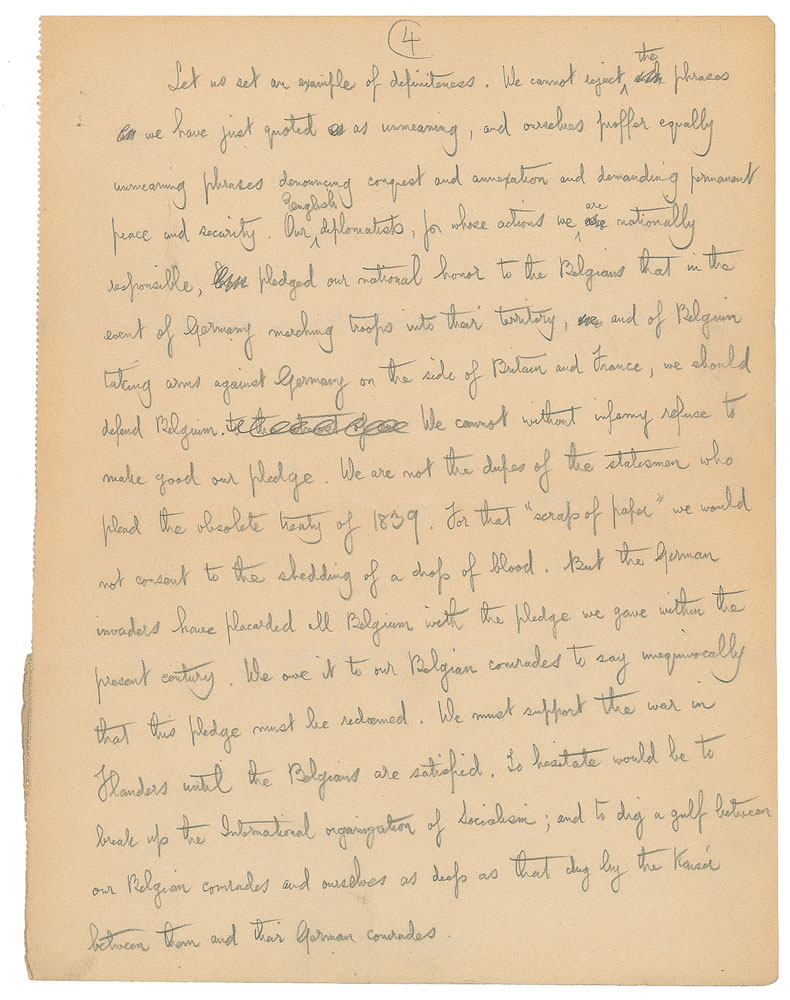 4
Let us set an example of definiteness. We cannot reject the phrases
we have just quoted as unmeaning, and ourselves proffer equally
unmeaning phrases denouncing conquest and annexation and demanding permanent
peace and security. Our English diplomatists, for whose actions we are nationally
responsible, pledged our national honor to the Belgians that in the
event of Germany marching troops into their territory, and of Belgium
taking arms against Germany on the side of Britain and France, we should
defend Belgium. We cannot without infamy refuse to
make good our pledge. We are not the dupes of the statesmen who
plead the obsolete treaty of 1839. For that "scrap of paper" we would
not consent to the shedding of a drop of blood. But the German
invaders have placarded all Belgium with the pledge we gave within the
present century. We owe it to our Belgian comrades to say unequivocally
that this pledge must be redeemed. We must support the war in
Flanders until the Belgians are satisfied. To hesitate would be to
break up the International organization of Socialism; and to dig a gulf between
our Belgian comrades and ourselves as deep as that dug by the Kaiser
between them and their German comrades.